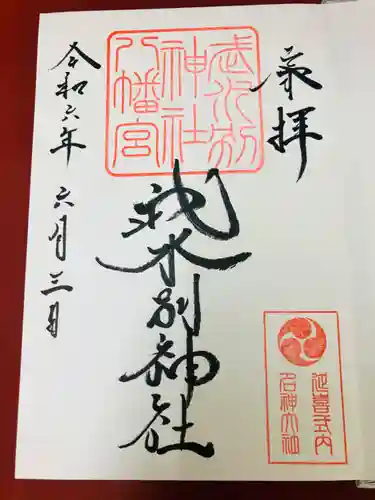 奉拝
武水別
神社
八幡宮
武水別神社
延喜式内
名神大社
令和六年 六月三日